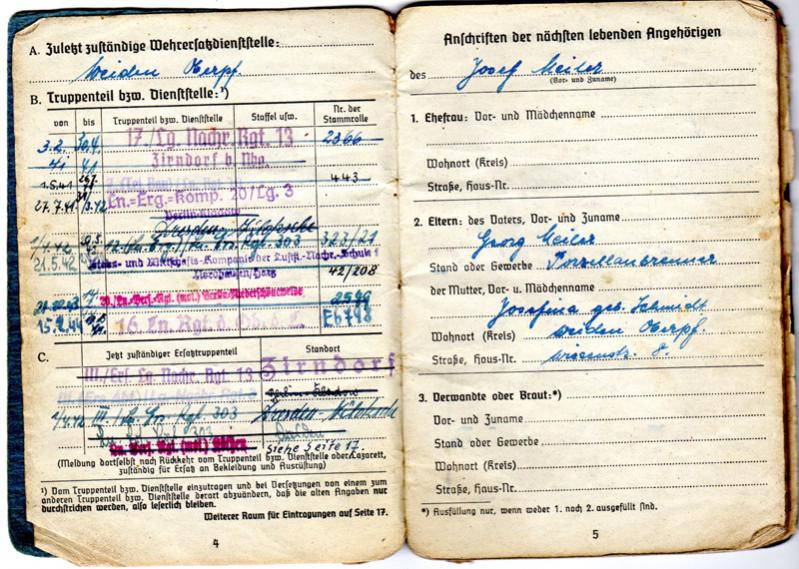 A. Zuletzt zuständige Wehrersatzdienststelle:
Weiden Oberpf.
B. Truppenteil bzw. Dienststelle:¹)
von bis Truppenteil bzw. Dienststelle Staffel usw. Nr. der Stammrolle
3.2. 30.4. 17./Lg. Nachr. Rgt. 13 2366
41 41 Zirndorf b. Nbg.
1.5.41 443
27.7.41 Ln.-Erg.-Komp. 20/Lg. 3
Dresden
Ln. Rgt. 303 323/21
21.5.42 Kompanie der Luftw.-Nachr.-Schule 1
Nordhausen/Harz 42/208
20./Ln.-Vers.-Rgt. (mot.) 2599
15. 16. Ln. Rgt. d. Ob. d. L. Eb 798
C. Jetzt zuständiger Ersatztruppenteil Standort
III./Ers. Lg. Nachr. Rgt 13 Zirndorf
1/4.42 III Rgt. 303 Dresden
Ln. Vers. Rgt. (mot)
Siehe Seite 17.
(Meldung dortselbst nach Rückkehr vom Truppenteil bzw. Dienststelle oder Lazarett,
zuständig für Ersatz an Bekleidung und Ausrüstung)
¹) Vom Truppenteil bzw. Dienststelle einzutragen und bei Versetzungen von einem zum
anderen Truppenteil bzw. Dienststelle derart abzuändern, daß die alten Angaben nur
durchstrichen werden, also leserlich bleiben.
Weiterer Raum für Eintragungen auf Seite 17.
4
Anschriften der nächsten lebenden Angehörigen
des Josef Meiler
(Vor- und Zuname)
1. Ehefrau: Vor- und Mädchenname
Wohnort (Kreis)
Straße, Haus-Nr.
2. Eltern: des Vaters, Vor- und Zuname
Georg Meiler
Stand oder Gewerbe Porzellanbrenner
der Mutter, Vor- u. Mädchenname
Josefina geb. Schmidt
Wohnort (Kreis) Weiden Oberpf.
Straße, Haus-Nr. 8.
3. Verwandte oder Braut:*)
Vor- und Zuname
Stand oder Gewerbe
Wohnort (Kreis)
Straße, Haus-Nr.
*) Ausfüllung nur, wenn weder 1. noch 2. ausgefüllt sind.
5